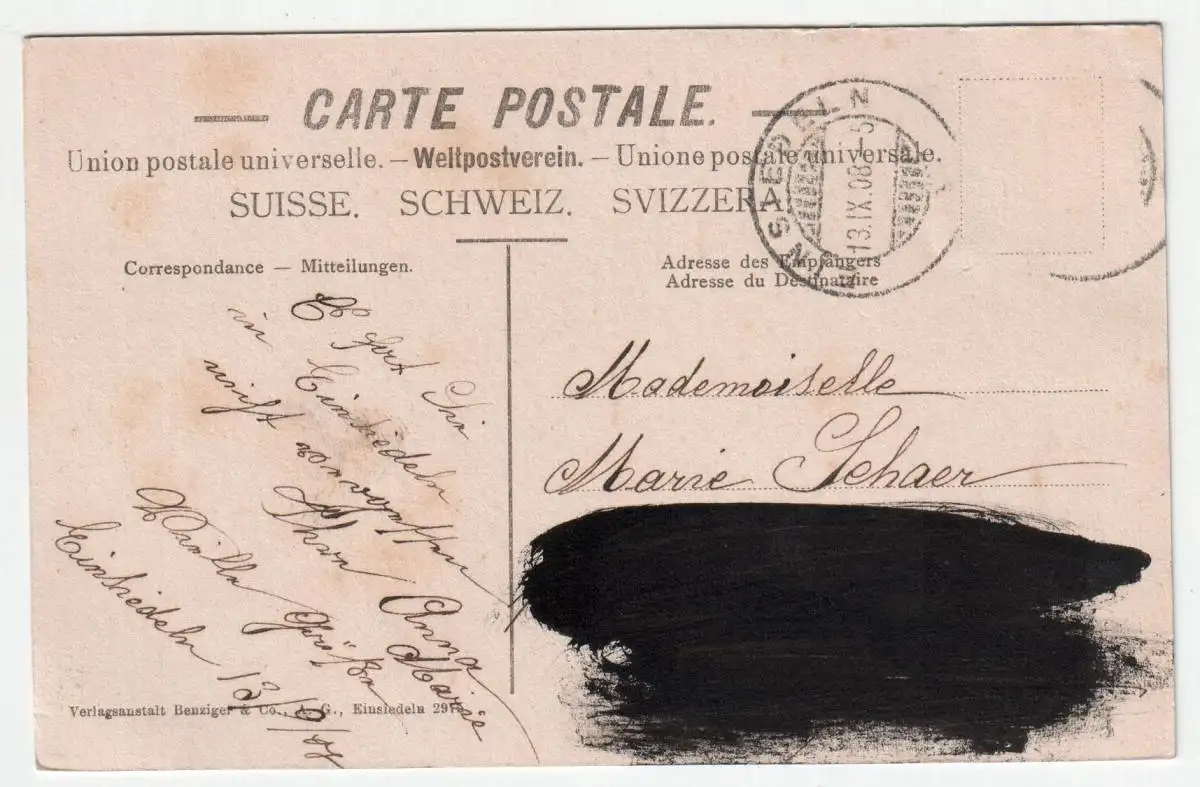 CARTE POSTALE.
Union postale universelle. – Weltpostverein. – Unione postale universale.
SUISSE. SCHWEIZ. SVIZZERA.
EINSIEDELN
13.IX.08.-5
Correspondance — Mitteilungen.
Adresse des Empfängers
Adresse du Destinataire
in Einsiedeln
Anna
Marie
Einsiedeln 13/9/08
Mademoiselle
Marie Schaer
Verlagsanstalt Benziger & Co., A. G., Einsiedeln